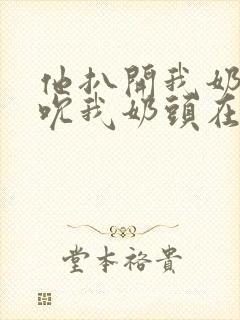 他扒開我奶
吮我奶頭在
堂本裕貴